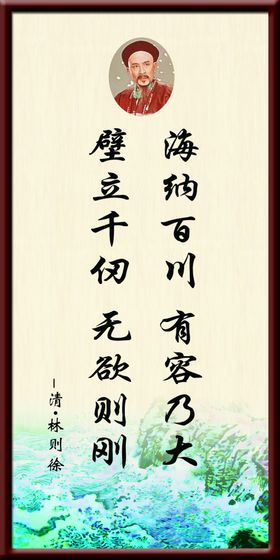 海纳百川 有容乃大
壁立千仞 无欲则刚
–清·林则徐